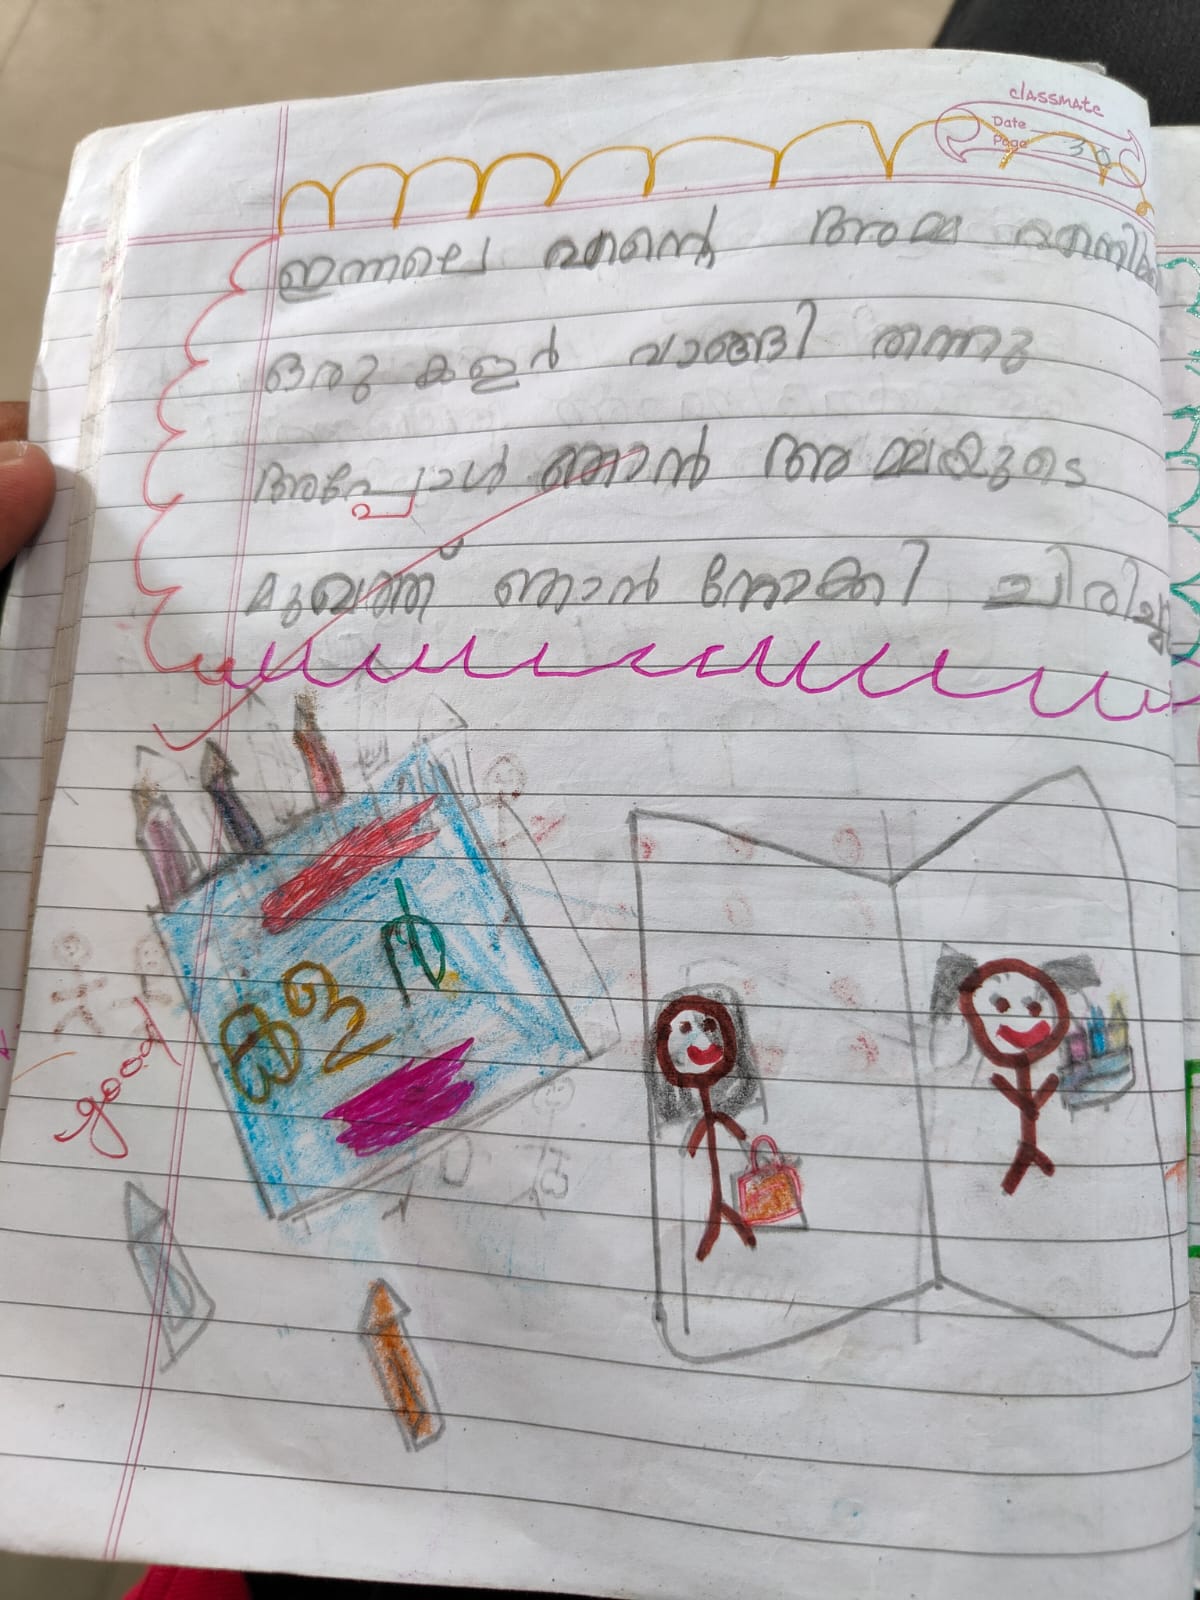 classmate
Date
Page 30
ഇന്നലെ എന്റെ അമ്മ എനിക്ക്
ഒരു കളർ വാങ്ങി തന്നു
അപ്പോൾ ഞാൻ അമ്മയുടെ
മുഖത്ത് ഞാൻ നോക്കി ചിരിച്ചു
കളർ
good